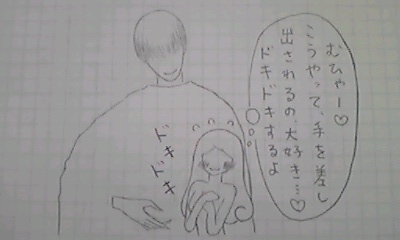 むひゃー♡
こうやって、手を差し
出されるの、大好き…♡
ドキドキするよ
ドキ
ドキ